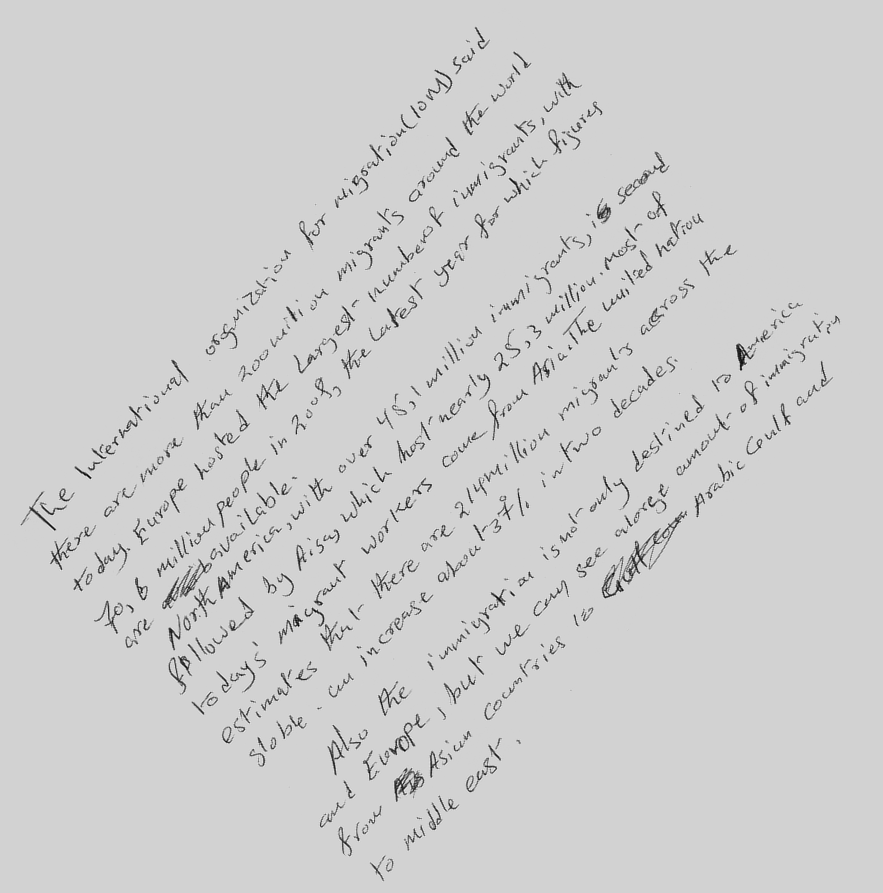 The International organization for migration (IOM) said
there are more than 200 million migrants around the world
today. Europe hosted the Largest number of immigrants, with
70,6 million people in 2009, the latest year for which figures
are available.
North America, with over 45,1 million immigrants, is second
followed by Aisa, which host nearly 25,3 million. most of
today's migrant workers come from Asia. The united nation
estimates that there are 214 million migrants across the
globle. an increase about 37% in two decades.
Also the immigration is not only destined to America
and Europe, but we can see alarge amount of immigration
from Asian Countries to Arabic Gulf and
to middle east.